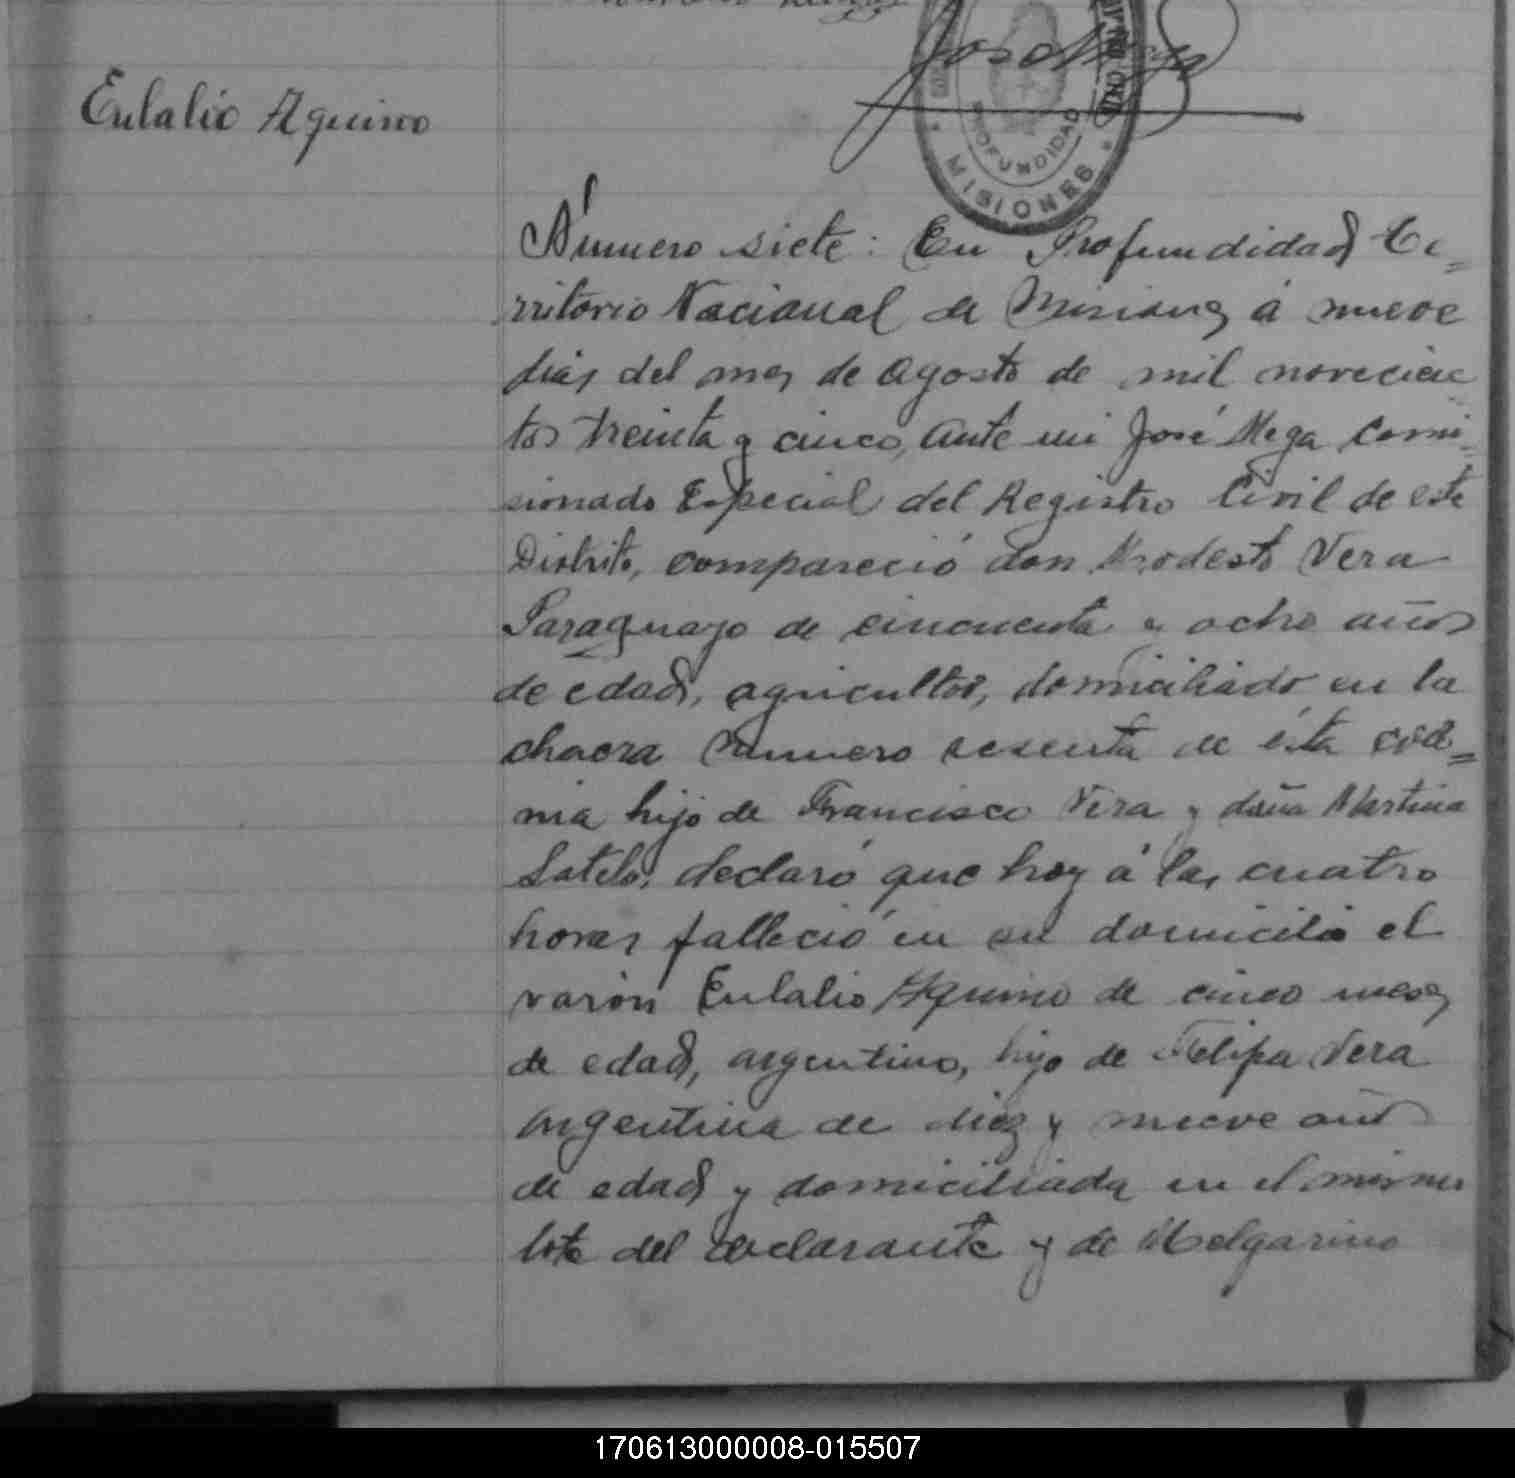 José Mega
REGISTRO CIVIL
PROFUNDIDAD
MISIONES
Eulalio Aquino
Número siete: En Profundidad Te=
rritorio Nacional de Misiones á nueve
dias del mes de Agosto de mil novecien
tos treinta y cinco, ante mi José Mega Comi=
sionado Especial del Registro Civil de este
Distrito, compareció don Modesto Vera
Paraguayo de cincuenta y ocho años
de edad, agricultor, domiciliado en la
chacra numero sesenta de ésta colo=
nia hijo de Francisco Vera y doña Martina
Sotelo, declaró que hoy á las cuatro
horas falleció en su domicilio el
varón Eulalio Aquino de cinco meses
de edad, argentino, hijo de Felipa Vera
argentina de diez y nueve años
de edad y domiciliada en el mismo
lote del declarante y de Melgarino
170613000008-015507